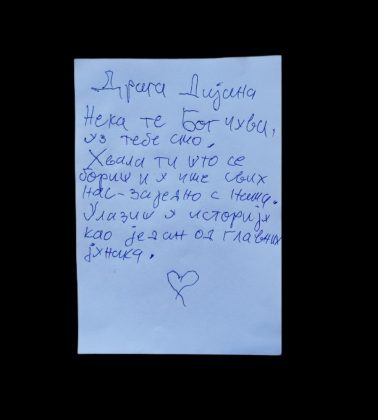 Драга Дијана
Нека те Бог чува,
уз тебе смо.
Хвала ти што се
бориш и у име свих
нас-заједно с нама.
Улазиш у историју
као један од главних
јунака.